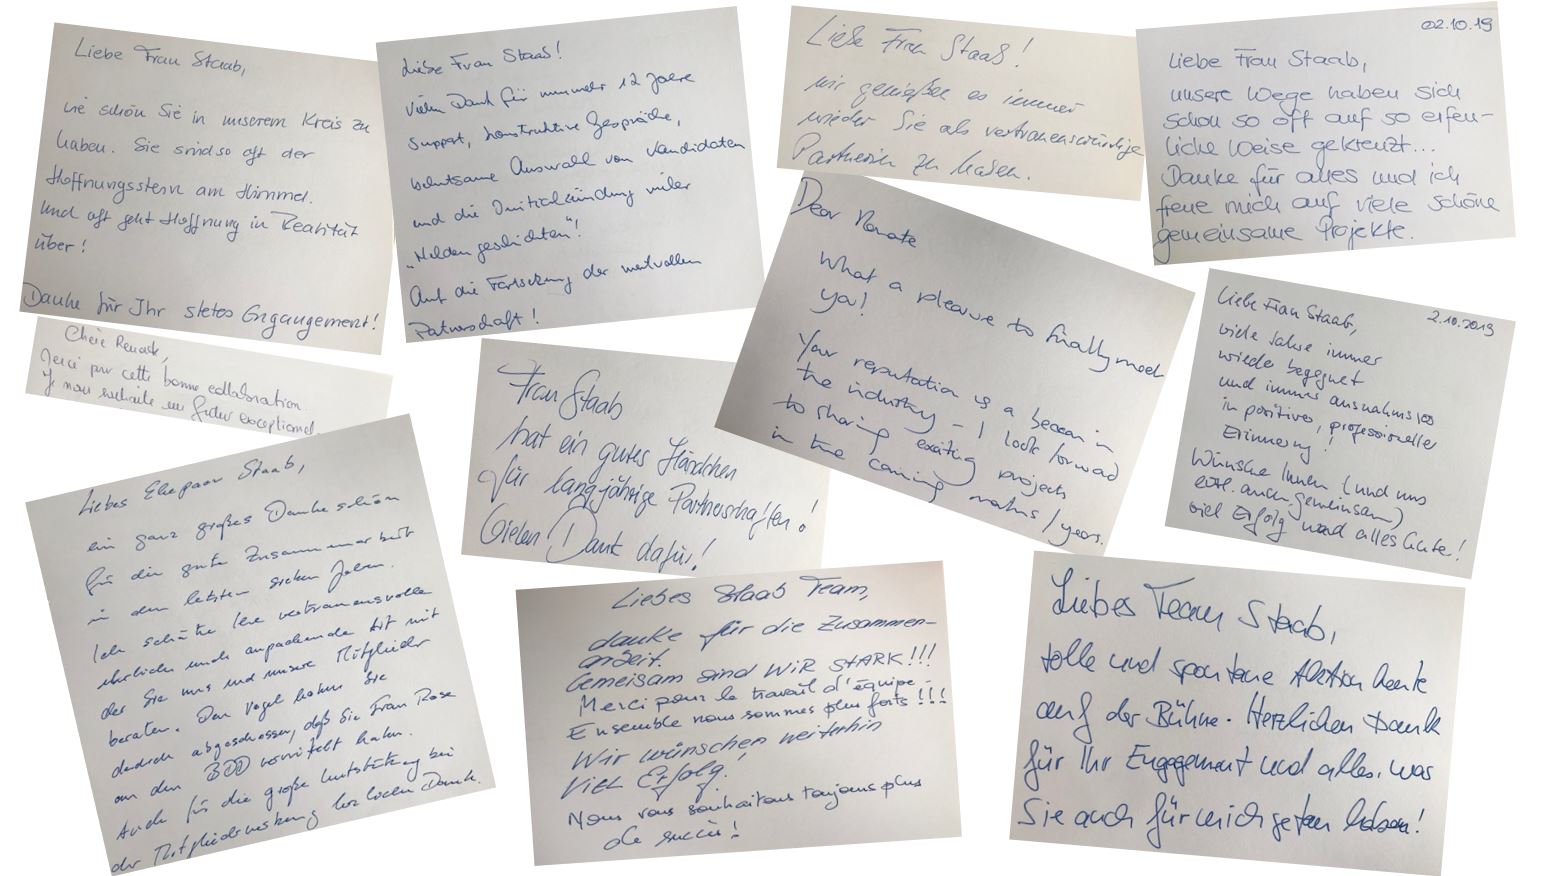 Liebe Frau Staab,
wie schön Sie in unserem Kreis zu
haben. Sie sind so oft der
Hoffnungsstern am Himmel.
Und oft geht Hoffnung in Realität
über!
Danke für Ihr stetes Engangement!
Liebe Frau Staab!
Vielen Dank für nunmehr 12 Jahre
Support, konstruktive Gespräche,
behutsame Auswahl von Kandidaten
und die Initialzündung vieler
„Heldengeschichten"!
Auf die Fortsetzung der wertvollen
Partnerschaft!
Liebe Frau Staab!
wir genießen es immer
wieder Sie als vertrauenswürdige
Partnerin zu haben.
02.10.19
Liebe Frau Staab,
unsere Wege haben sich
schon so oft auf so erfeu-
liche Weise gekreuzt...
Danke für alles und ich
freue mich auf viele schöne
gemeinsame Projekte.
Chère Renate,
Merci pour cette bonne collaboration.
Je nous souhaite un futur exceptionnel.
Frau Staab
hat ein gutes Händchen
für langjährige Partnerschaften!
Vielen Dank dafür!
Dear Renate
What a pleasure to finally meet
you!
Your reputation is a beacon in
the industry – I look forward
to sharing exciting projects
in the coming months / years.
2.10.2019
Liebe Frau Staab,
viele Jahre immer
wieder begegnet
und immer ausnahmslos
in positiver, professioneller
Erinnerung!
Wünsche Ihnen (und uns
evtl. auch gemeinsam)
viel Erfolg und alles Gute!
Liebes Ehepaar Staab,
ein ganz großes Dankeschön
für die gute Zusammenarbeit
in den letzten sieben Jahren.
Ich schätze Ihre vertrauensvolle
ehrliche und anpackende Art mit
der Sie uns und unsere Mitglieder
beraten. Den Vogel haben Sie
dadurch abgeschossen, daß Sie Frau Rose
an den BDD vermittelt haben.
Auch für die große Unterstützung bei
der Mitgliederwerbung herzlichen Dank.
Liebes Staab Team,
danke für die Zusammen-
arbeit.
Gemeinsam sind WIR STARK!!!
Merci pour le travail d'équipe.
Ensemble nous sommes plus forts!!!
Wir wünschen weiterhin
viel Erfolg!
Nous vous souhaitons toujours plus
de succès!
Liebes Team Staab,
tolle und spontane Aktion heute
auf der Bühne. Herzlichen Dank
für Ihr Engagement und alles, was
Sie auch für mich getan haben!